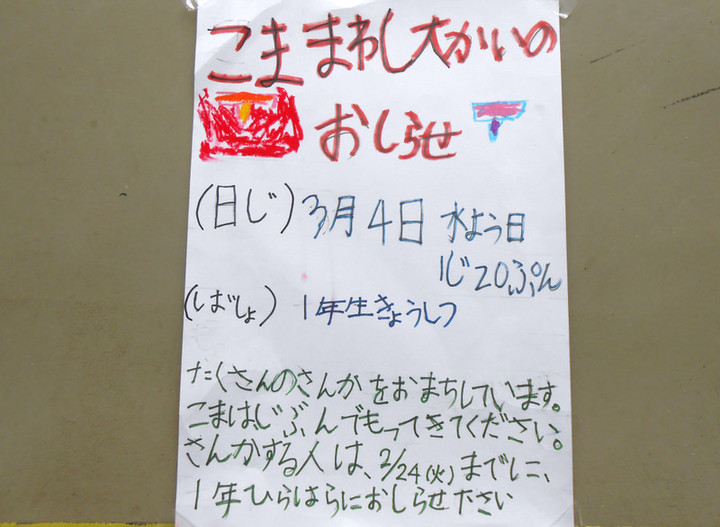 こままわし大かいの
おしらせ
(日じ) 3月4日 水よう日
1じ20ぷん
(しばしょ) 1年生きょうしつ
たくさんのさんかをおまちしています。
こまは、じぶんでもってきてください。
さんかする人は、2/24(火)までに、
1年ひらはらにおしらせださい